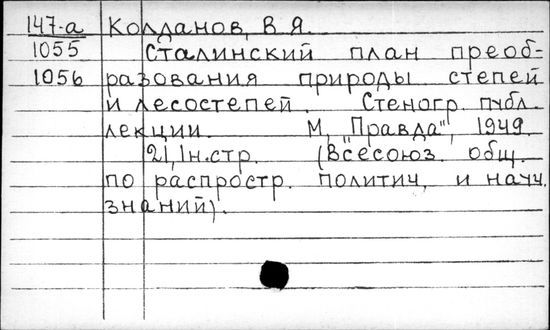 147-а Колданов, В.Я.
1055 Сталинский план преоб-
1056 разования природы степей
и лесостепей. Стеногр. публ.
лекции. М, "Правда", 1949.
21,1н.стр. (Всесоюз. общ.
по распростр. политич. и научн.
знаний).